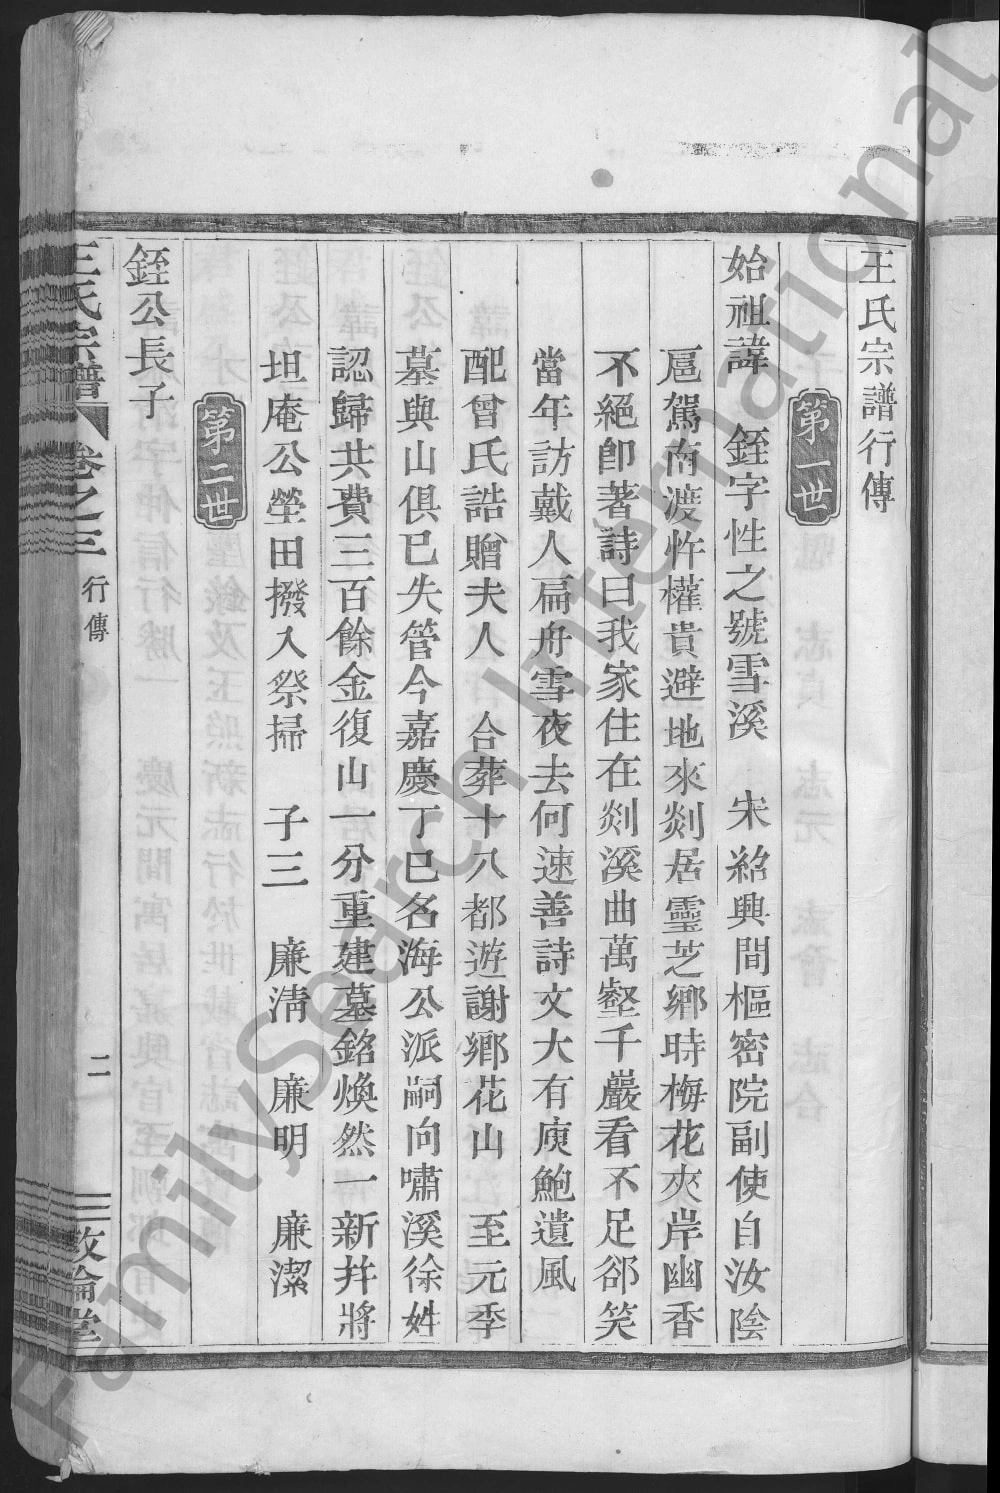 王氏宗譜行傳
第一世
始祖諱 銍字性之號雪溪 宋 紹興間樞密院副使自汝陰
扈駕南渡忤權貴避地來剡居靈芝鄉時梅花夾岸幽香
不絕卽著詩曰我家住在剡溪曲萬壑千巖看不足郤笑
當年訪戴人扁舟雪夜去何速善詩文大有庾鮑遺風
配曾氏誥贈夫人 合葬十八都遊謝鄉花山 至元季
墓與山俱已失管今嘉慶丁巳名海公派嗣向嘯溪徐姓
認歸共費三百餘金復山一分重建墓銘煥然一新幷將
坦庵公塋田撥入祭掃 子三 廉淸 廉明 廉潔
第二世
銍公長子
王氏宗譜 卷之三 行傳 二 敦倫堂
FamilySearch International